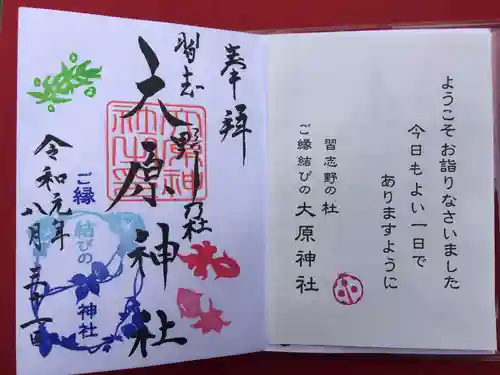 奉拝
習志野の杜
大原神社
大原神社
ご縁
結びの
神社
令和元年
八月三十一日
ようこそお詣りなさいました
今日もよい一日で
ありますように
習志野の杜
ご縁結びの 大原神社